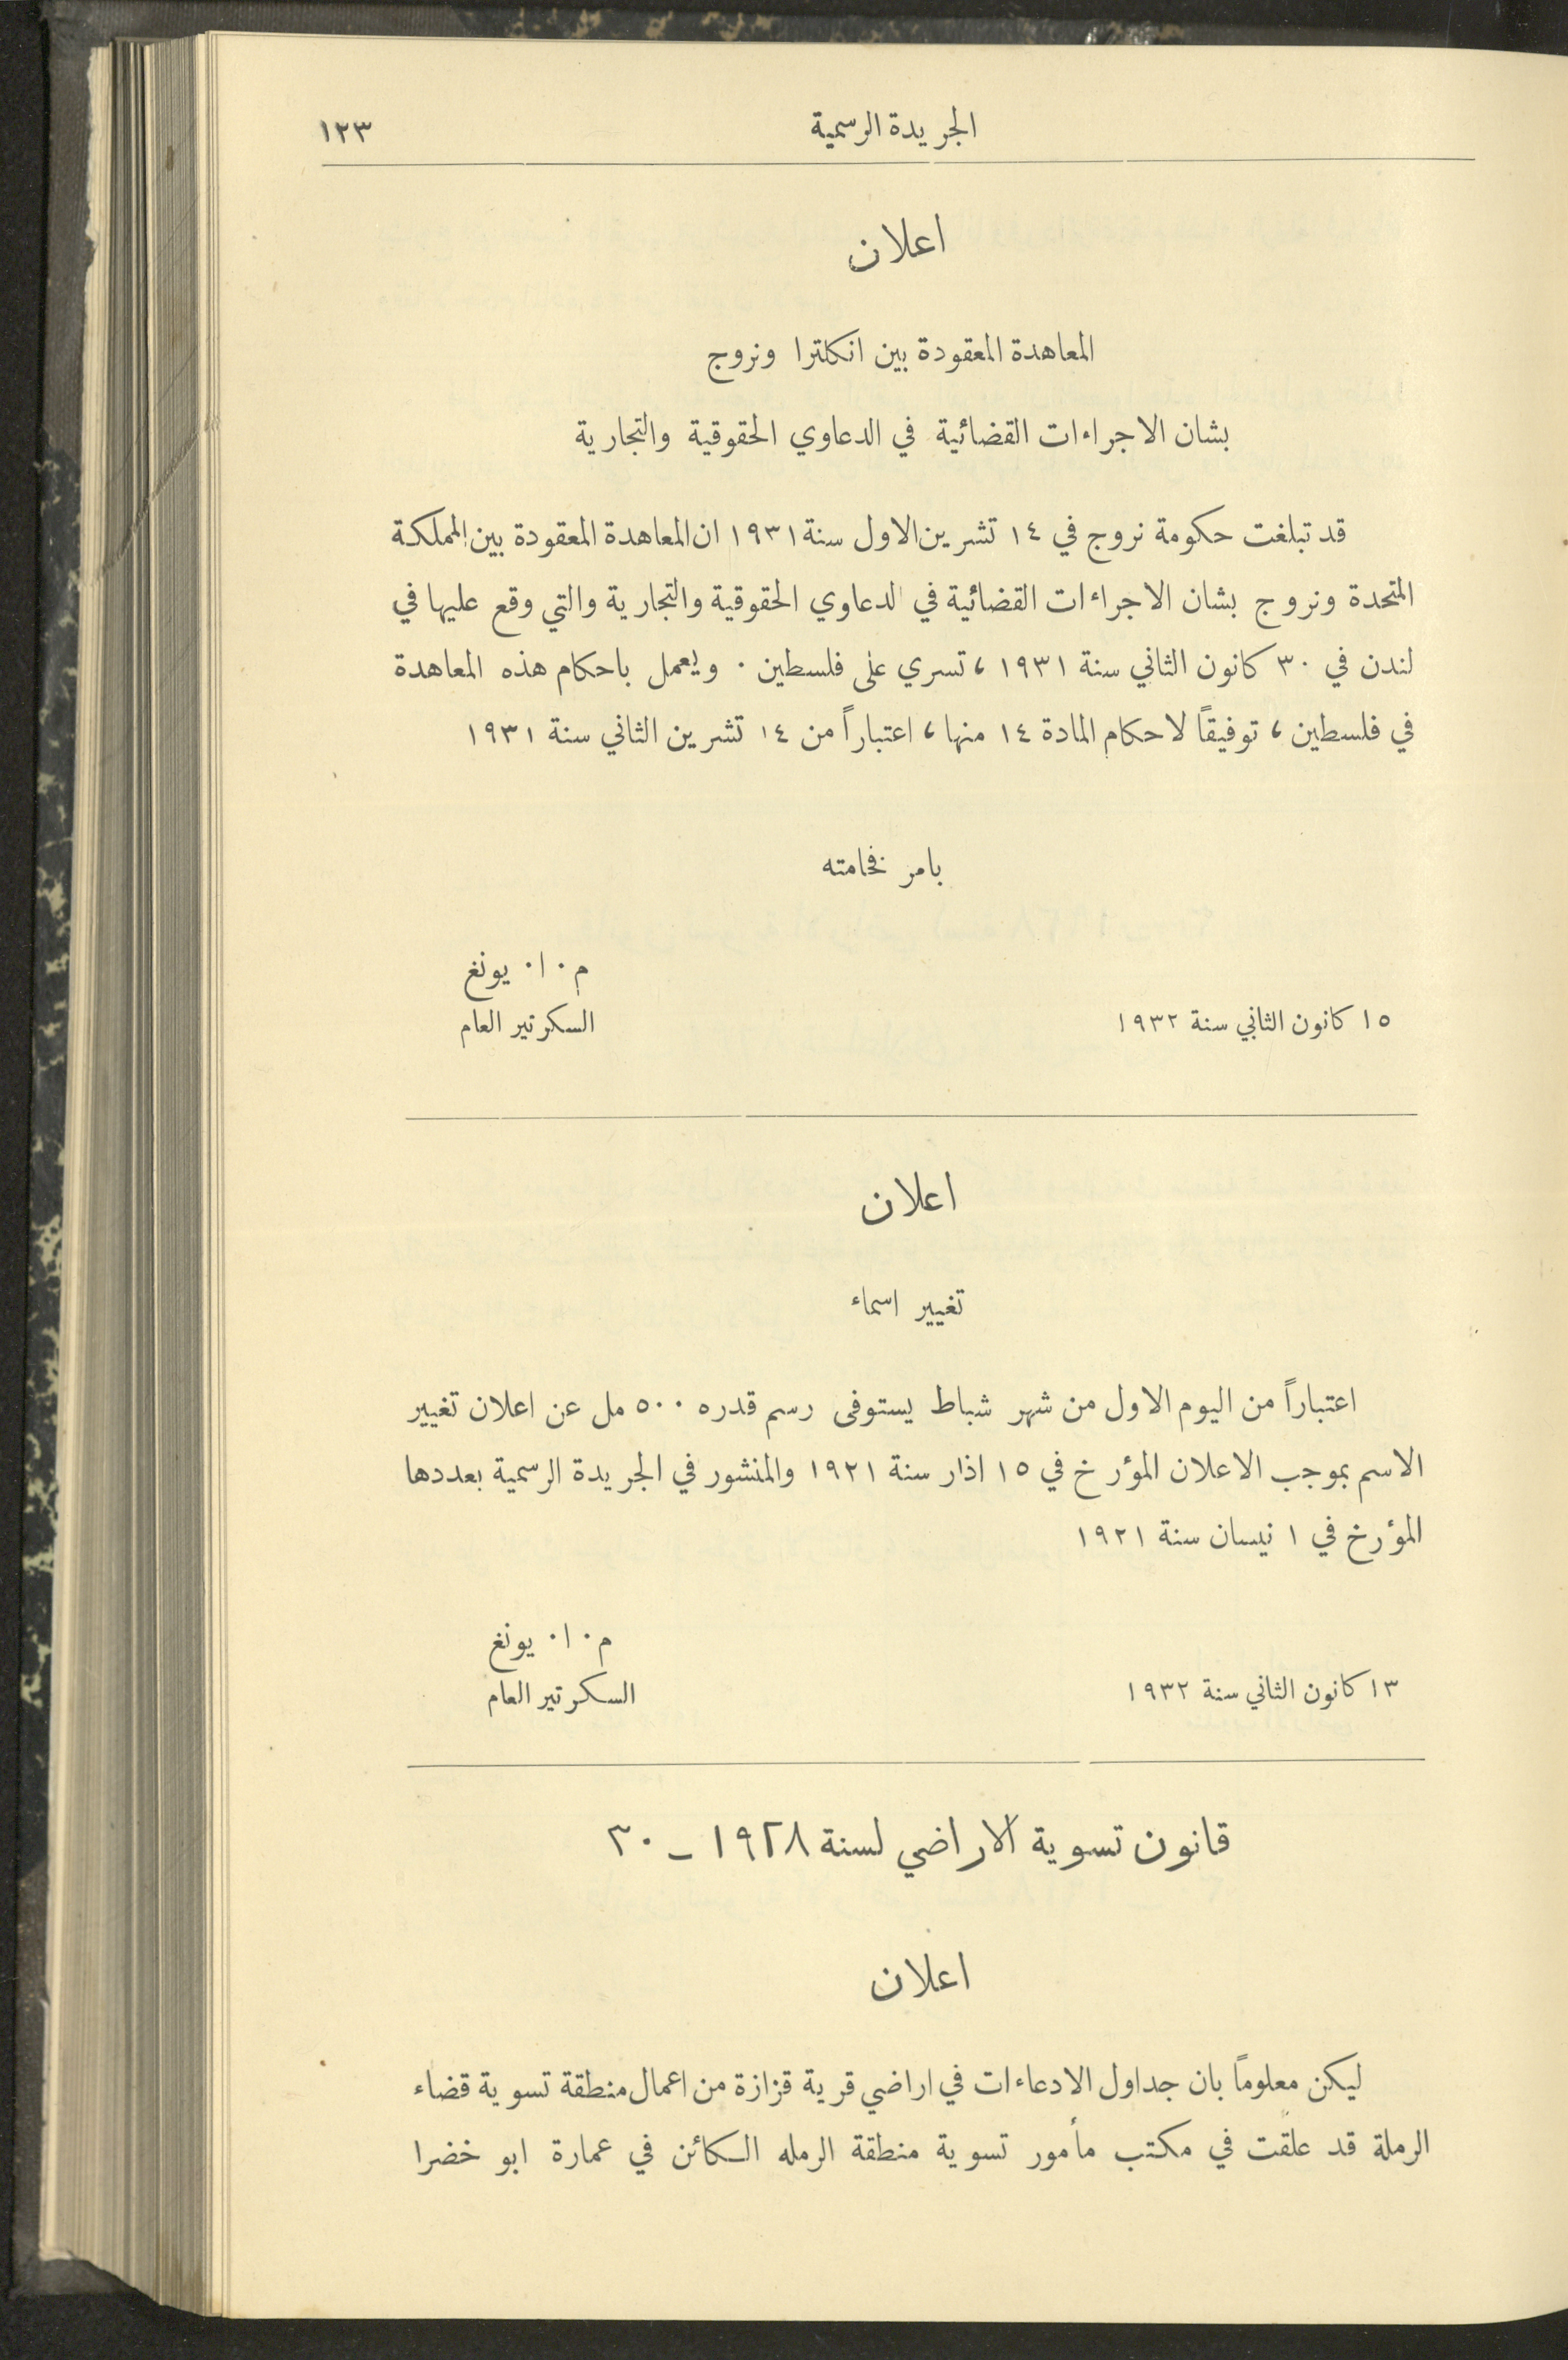 الجريدة الرسمية ١٢٣
اعلان
المعاهدة المعقودة بين انكلترا ونروج
بشان الاجراءات القضائية في الدعاوي الحقوقية والتجارية
قد تبلغت حكومة نروج في ١٤ تشرين الاول سنة ١٩٣١ ان المعاهدة المعقودة بين المملكة
المتحدة ونروج بشان الاجراءات القضائية في الدعاوي الحقوقية والتجارية والتي وقع عليها في
لندن في ٣٠ كانون الثاني سنة ١٩٣١ ، تسري على فلسطين . ويعمل باحكام هذه المعاهدة
في فلسطين ، توفيقاً لاحكام المادة ١٤ منها ، اعتباراً من ١٤ تشرين الثاني سنة ١٩٣١
بامر فخامته
م . ا . يونغ
١٥ كانون الثاني سنة ١٩٣٢ السكرتير العام
اعلان
تغيير اسماء
اعتباراً من اليوم الاول من شهر شباط يستوفى رسم قدره ٥٠٠ مل عن اعلان تغيير
الاسم بموجب الاعلان المؤرخ في ١٥ اذار سنة ١٩٢١ والمنشور في الجريدة الرسمية بعددها
المؤرخ في ١ نيسان سنة ١٩٢١
م . ا . يونغ
١٣ كانون الثاني سنة ١٩٣٢ السكرتير العام
قانون تسوية الاراضي لسنة ١٩٢٨ - ٣٠
اعلان
ليكن معلوماً بان جداول الادعاءات في اراضي قرية قزازة من اعمال منطقة تسوية قضاء
الرملة قد علقت في مكتب مأمور تسوية منطقة الرمله الكائن في عمارة ابو خضرا